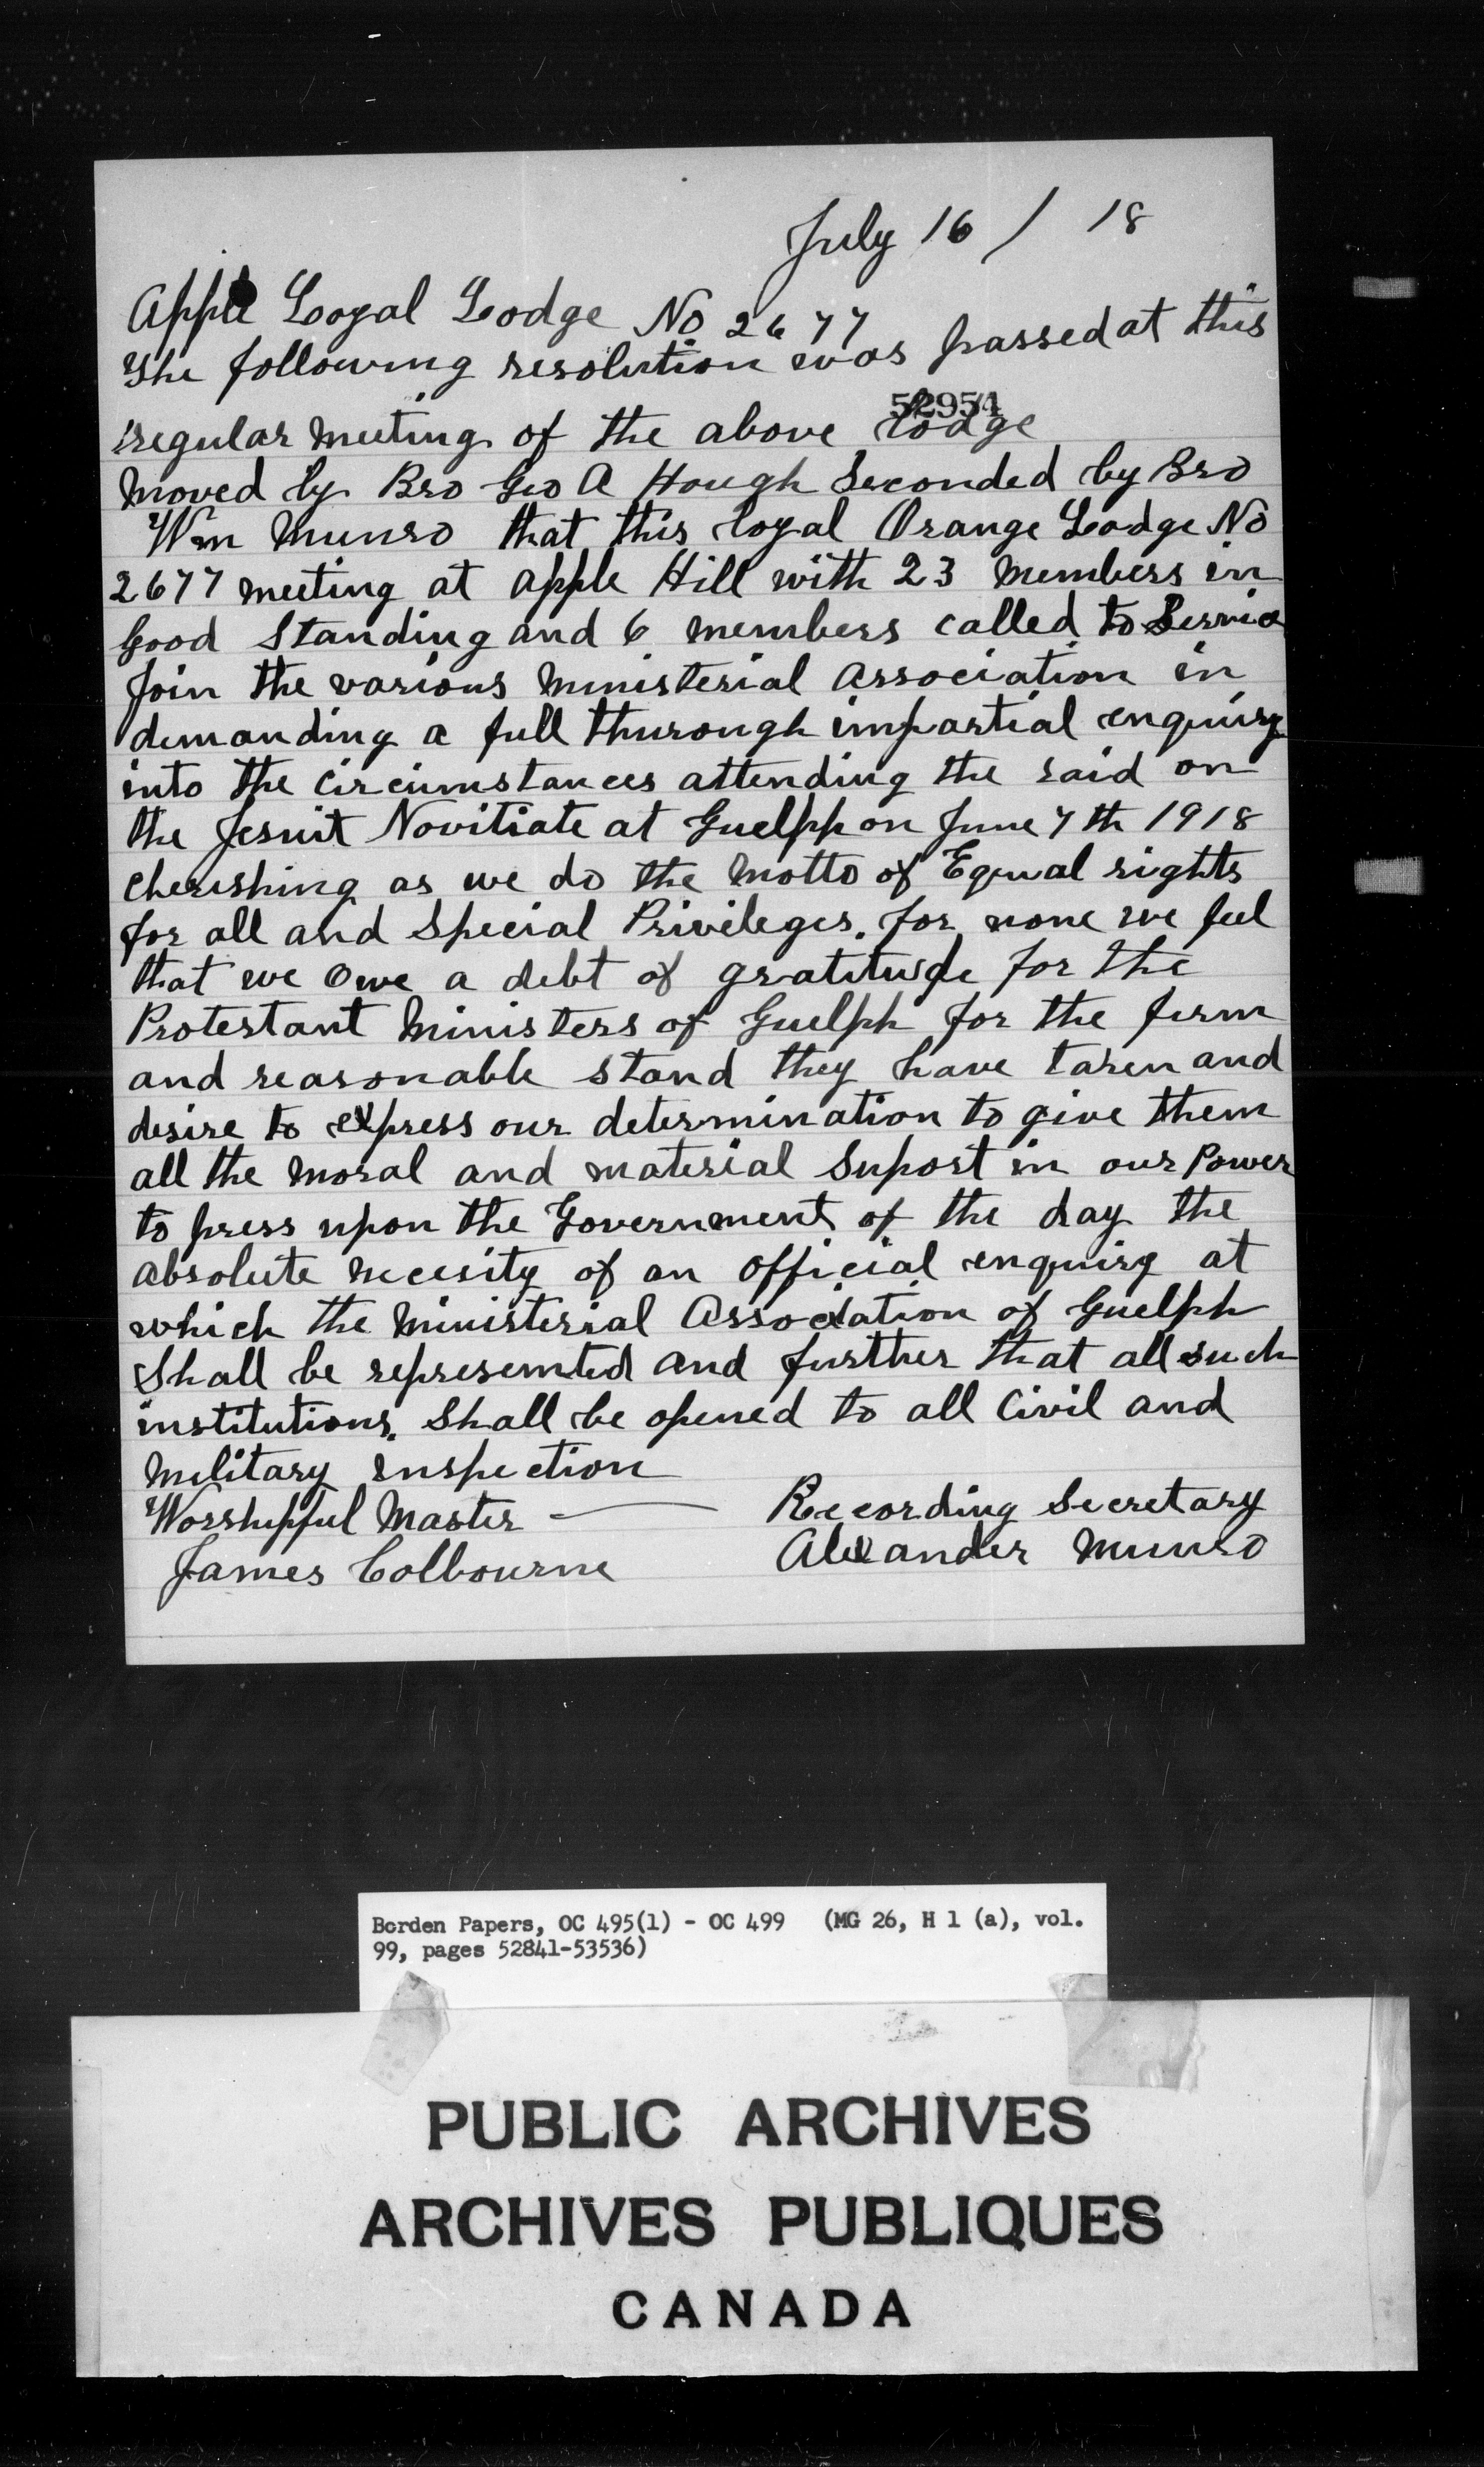 July 16 / 18
Apple Loyal Lodge No 2677
The following resolution was passed at this
52954
regular meeting of the above Lodge
Moved by Bro Geo A Hough Seconded by Bro
Wm Munro that this loyal Orange Lodge No
2677 meeting at Apple Hill with 23 members in
Good Standing and 6 members called to Service
Join the various Ministerial Association in
demanding a full thurough impartial enquiry
into the circumstances attending the raid on
the Jesuit Novitiate at Guelph on June 7th 1918
cherishing as we do the Motto of Equal rights
for all and Special Privileges. for none we feel
that we owe a debt of gratitude for the
Protestant Ministers of Guelph for the firm
and reasonable stand they have taken and
desire to express our determination to give them
all the moral and material Suport in our Power
to press upon the Government of the day the
absolute necesity of an official enquiry at
which the Ministerial Association of Guelph
Shall be represemted and further that all such
institutions. Shall be opened to all Civil and
Military inspection
Worshipful Master — Recording Secretary
James Colbourne Alexander Munro
Borden Papers, OC 495(1) - OC 499 (MG 26, H 1 (a), vol.
99, pages 52841-53536)
PUBLIC ARCHIVES
ARCHIVES PUBLIQUES
CANADA